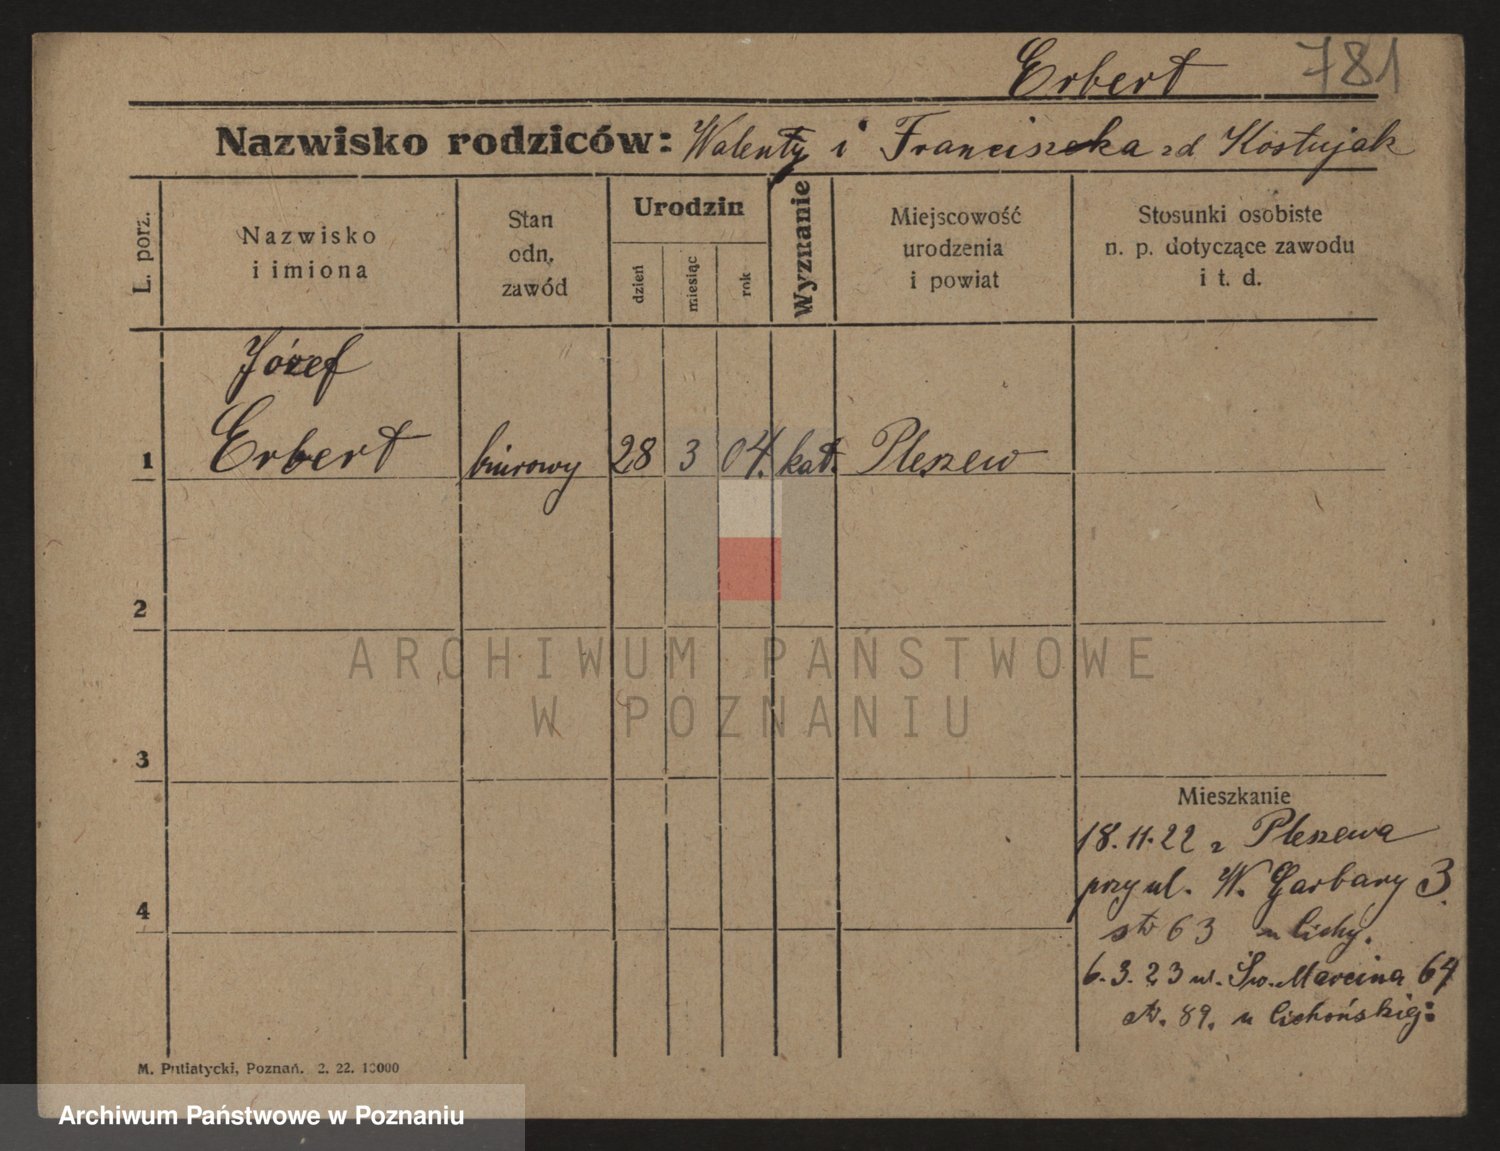 Erbert 781
Nazwisko rodziców: Walenty i Franciszka zd Kostujak
L. porz.
Nazwisko
i imiona
Stan
odn.
zawód
Urodzin
dzień
miesiąc
rok
Wyznanie
Miejscowość
urodzenia
i powiat
Stosunki osobiste
n. p. dotyczące zawodu
i t. d.
Józef
1 Erbert biurowy 28 3 04. kat. Pleszew
2
ARCHIWUM PAŃSTWOWE
W POZNANIU
3
Mieszkanie
18.11.22 z Pleszewa
przy ul. W. Garbary 3.
4
str 63 u Cichy.
6.3.23 ul. Św. Marcina 64
str. 89. u Cichońskiej:
M. Putiatycki, Poznań. 2. 22. 10000
Archiwum Państwowe w Poznaniu